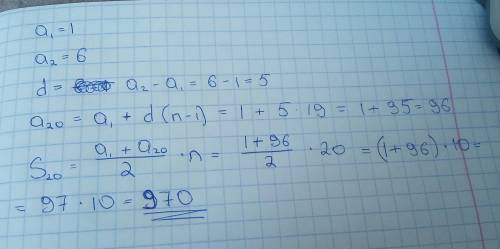 a₁ = 1
a₂ = 6
d = a₂ - a₁ = 6 - 1 = 5
a₂₀ = a₁ + d (n-1) = 1 + 5 · 19 = 1 + 95 = 96
S₂₀ = (a₁ + a₂₀)/2 · n = (1 + 96)/2 · 20 = (1 + 96) · 10 =
= 97 · 10 = 970